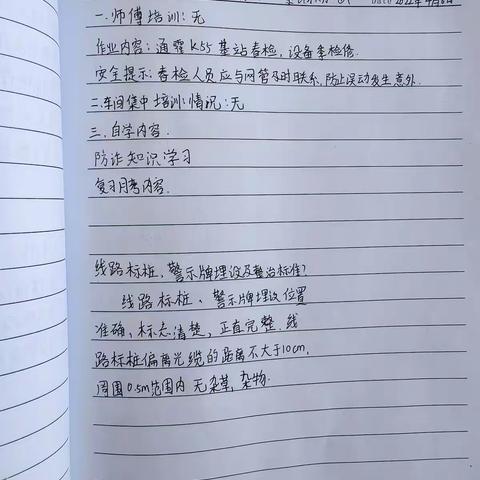 Date 2022年4月6日
一.师傅培训:无
作业内容:通霍K55基站春检,设备车检修.
安全提示:春检人员应与网管及时联系,防止误动发生意外.
二.车间集中培训:情况:无
三.自学内容.
防诈知识学习
复习月考内容.
线路标桩、警示牌埋设及整治标准?
线路标桩、警示牌埋设位置
准确,标志清楚,正直完整.线
路标桩偏离光缆的距离不大于10cm,
周围0.5m范围内无杂草,杂物.